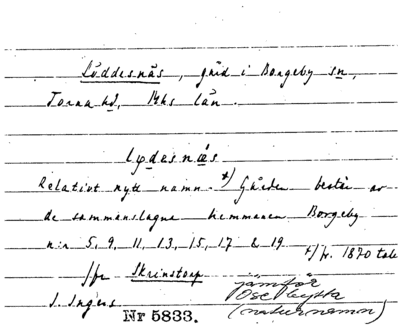 Löddesnäs, gård i Borgeby sn,
Torna hd, Mhs län.
lydesnæs
Relativt nytt namn. x) Gården består av
de sammanslagna hemmanen Borgeby
n:r 5, 9, 11, 13, 15, 17 & 19
x) fr. 1870 tale
/fr Skrinstorp
I. Ingers
jämför
(naturnamn)
Nr 5833.